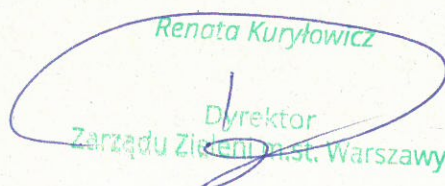 Renata Kuryłowicz
Dyrektor
Zarządu Zieleni m.st. Warszawy